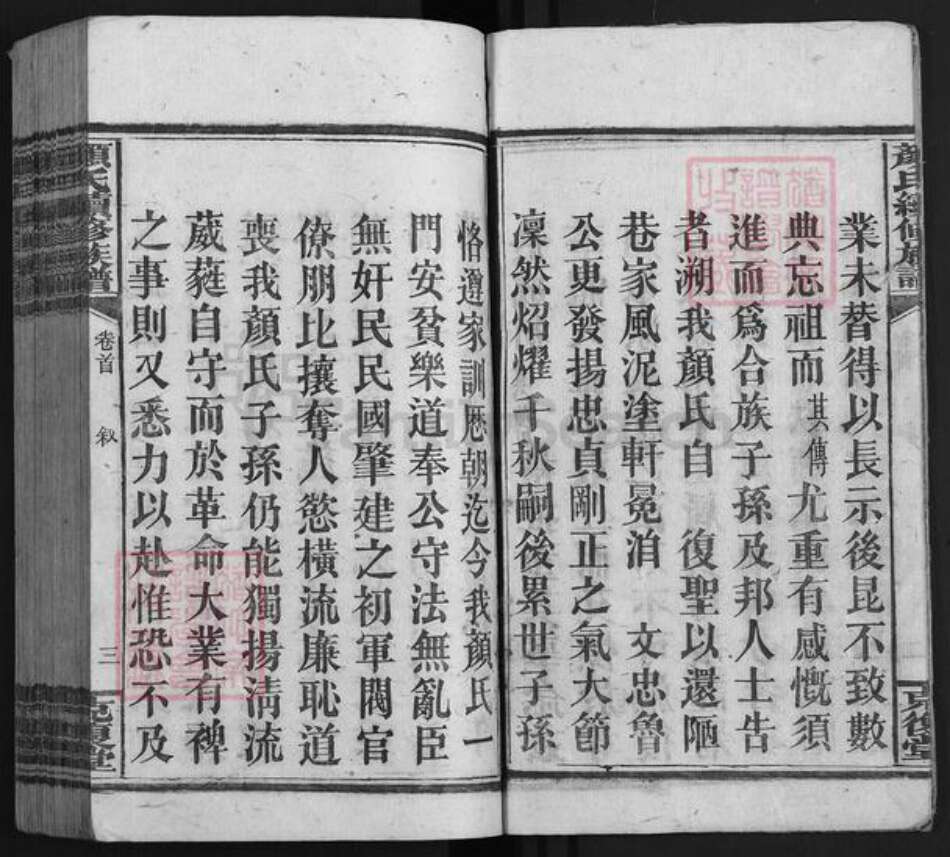 顏氏續修族譜
克復堂
業未替得以長示後昆不致數
典忘祖而其傳尤重有感慨須
進而爲合族子孫及邦人士告
者溯我顏氏自 復聖以還陋
巷家風泥塗軒冕洎 文忠魯
公更發揚忠貞剛正之氣大節
凜然炤燿千秋嗣後累世子孫
恪遵家訓歷朝迄今我顏氏一
門安貧樂道奉公守法無亂臣
無奸民民國肇建之初軍閥官
僚朋比攘奪人慾橫流廉恥道
喪我顏氏子孫仍能獨揚淸流
葳蕤自守而於革命大業有裨
之事則又悉力以赴惟恐不及
顏氏續修族譜
卷首 叙
三
克復堂